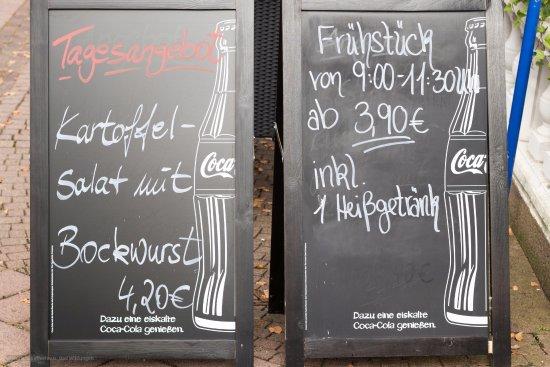 Tagesangebot
Kartoffel-
Salat mit
Bockwurst
4,20€
Coca
Dazu eine eiskalte
Coca-Cola genießen.
Frühstück
von 9:00-11:30Uhr
ab 3,90€
inkl.
1 Heißgetränk
Coca
Dazu eine eiskalte
Coca-Cola genießen.